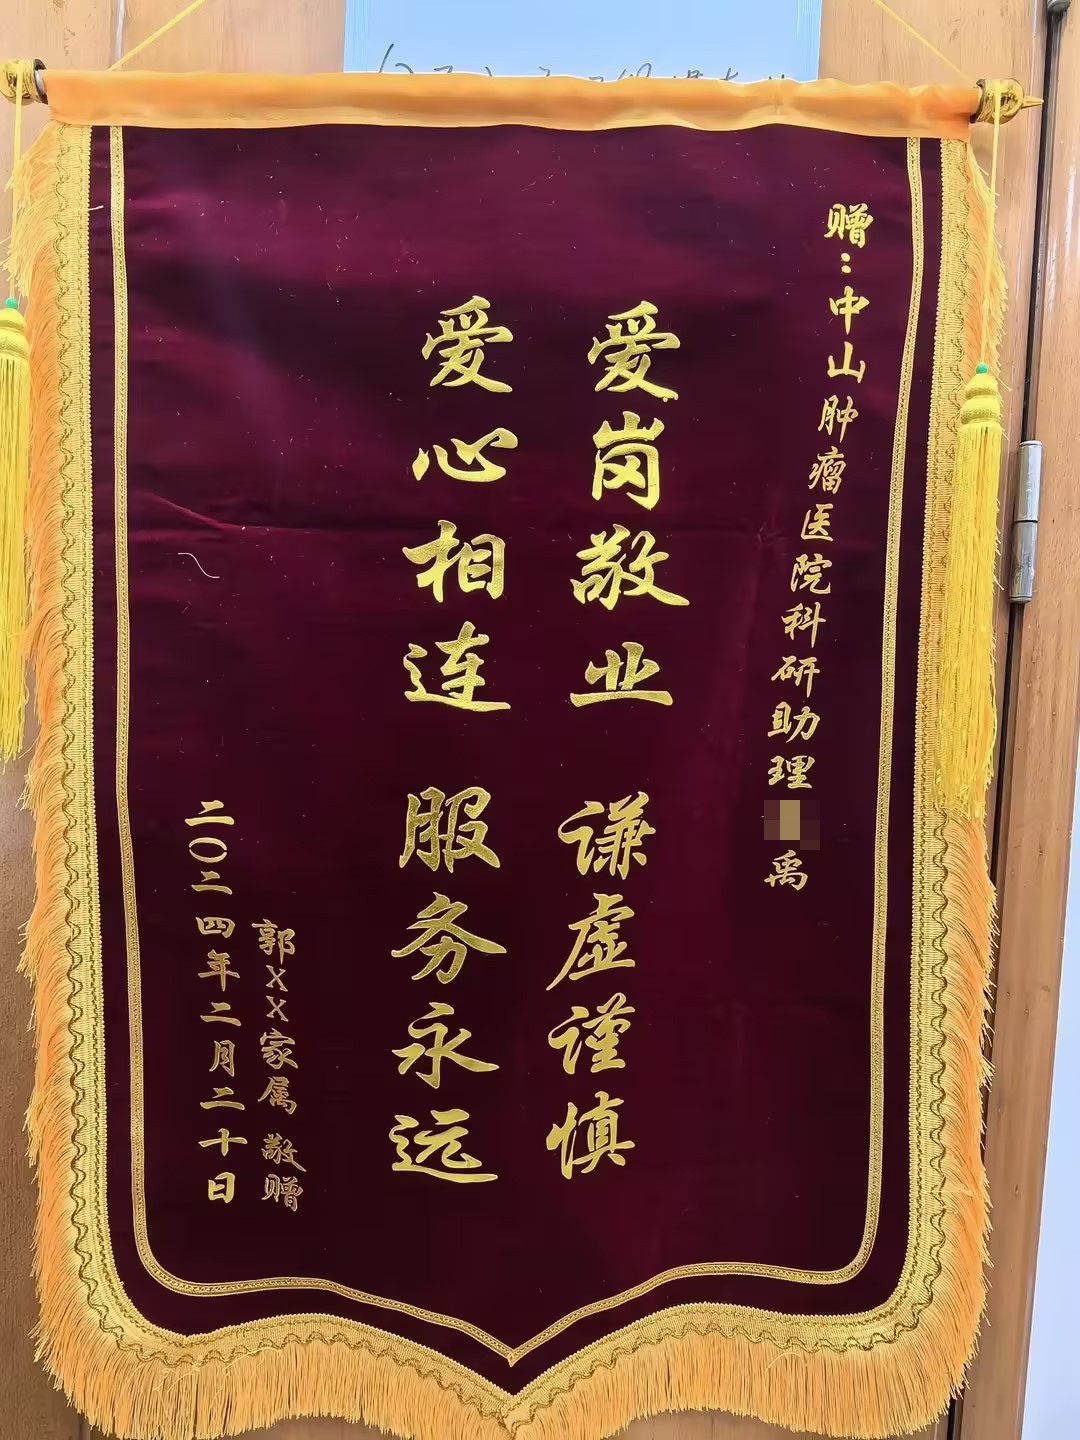 赠：中山肿瘤医院科研助理禹
爱岗敬业 谦虚谨慎
爱心相连 服务永远
郭XX家属 敬赠
二〇二四年二月二十日